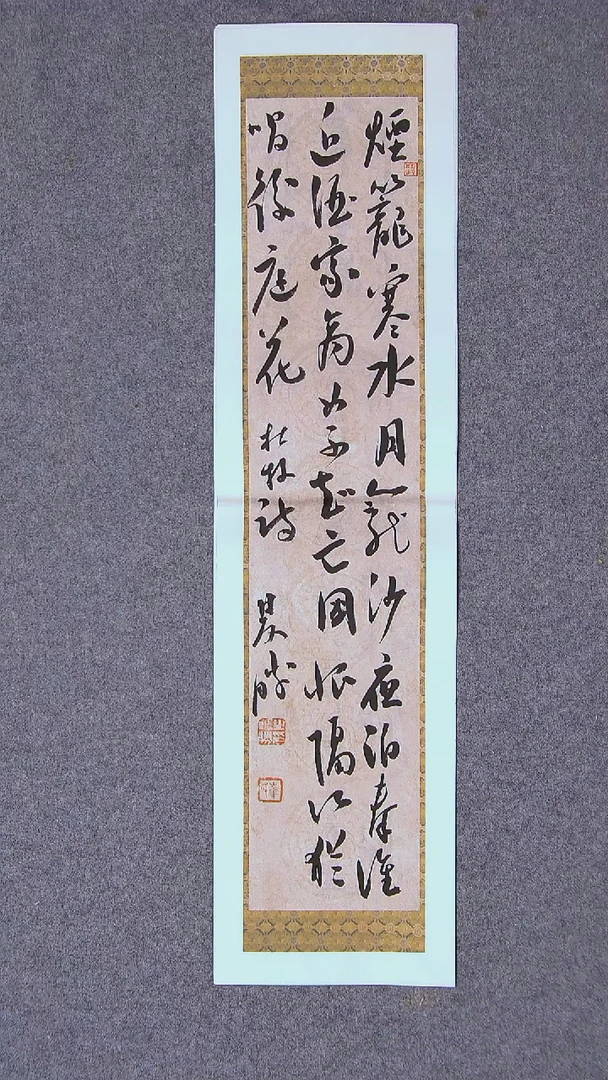 煙籠寒水月籠沙夜泊秦淮
近酒家商女不知亡國恨隔江猶
唱後庭花 杜牧詩